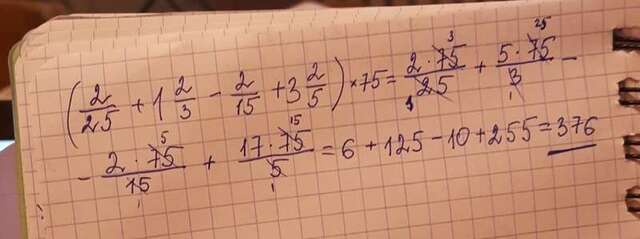 (2/25 + 1 2/3 - 2/15 + 3 2/5) × 75 = 2·75/25 + 5·75/3 -
- 2·75/15 + 17·75/5 = 6 + 125 - 10 + 255 = 376